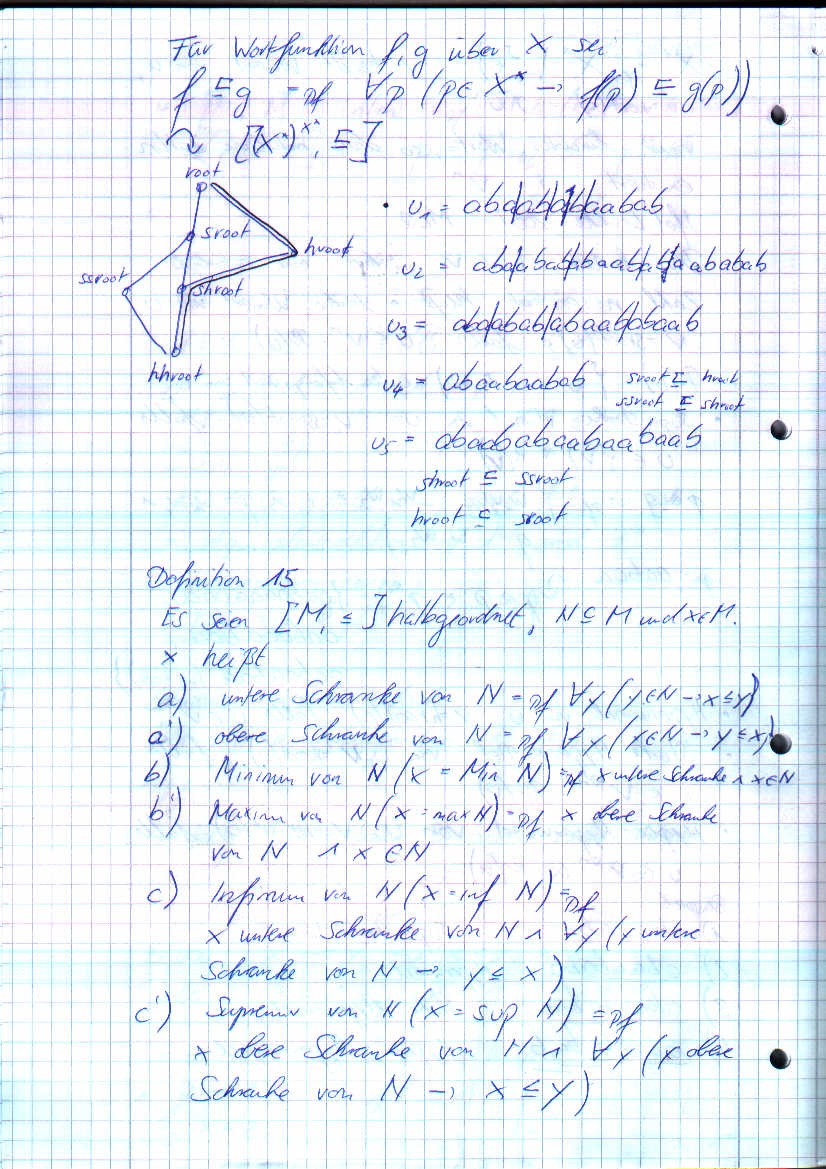 Für Wortfunktion f, g über X sei
f ⊑ g =Df ∀p (p∈X* → f(p) ⊑ g(p))
[(X*)^X*, ⊑]
root
sroot
hroot
ssroot
shroot
hhroot
u1 = aba|aba|b|aabab
u3 = aba|abab|abaab|abaab
u4 = abaabaabab
sroot ⊑ hroot
ssroot ⊑ shroot
u5 = abaababaabaabaab
shroot ⊑ ssroot
hroot ⊑ sroot
Definition 15
Es seien [M, ≤] halbgeordnet, N ⊆ M und x∈M.
x heißt
a) untere Schranke von N =Df ∀y (y∈N → x≤y)
a') obere Schranke von N =Df ∀y (y∈N → y≤x)
b) Minimum von N (x = Min N) =Df x untere Schranke ∧ x∈N
b') Maximum von N (x = max N) =Df x obere Schranke
von N ∧ x∈N
c) Infimum von N (x = inf N) =Df
x untere Schranke von N ∧ ∀y (y untere
Schranke von N → y ≤ x)
c') Supremum von N (x = sup N) =Df
x obere Schranke von N ∧ ∀y (y obere
Schranke von N → x ≤ y)